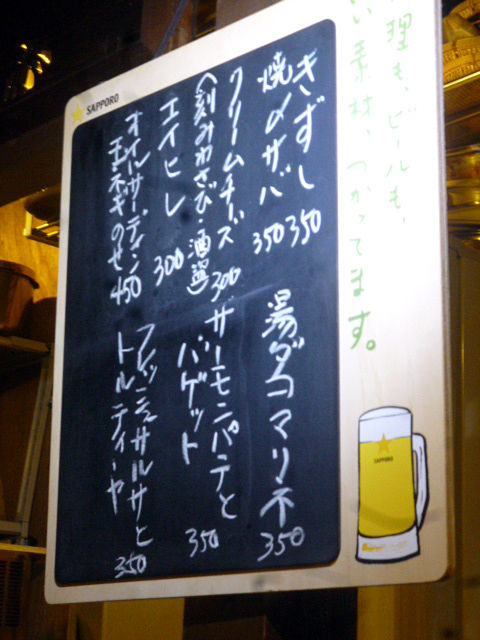 理も、ビールも、
い素材、つかってます。
SAPPORO
きずし 350
焼〆サバ 350
クリームチーズ
(刻みわさび・酒盗) 300
エイヒレ 300
オイルサーディン
玉ネギのせ 450
湯ダコマリネ 350
サーモンパテと
バゲット 350
フレッシュサルサと
トルティーヤ 350
SAPPORO